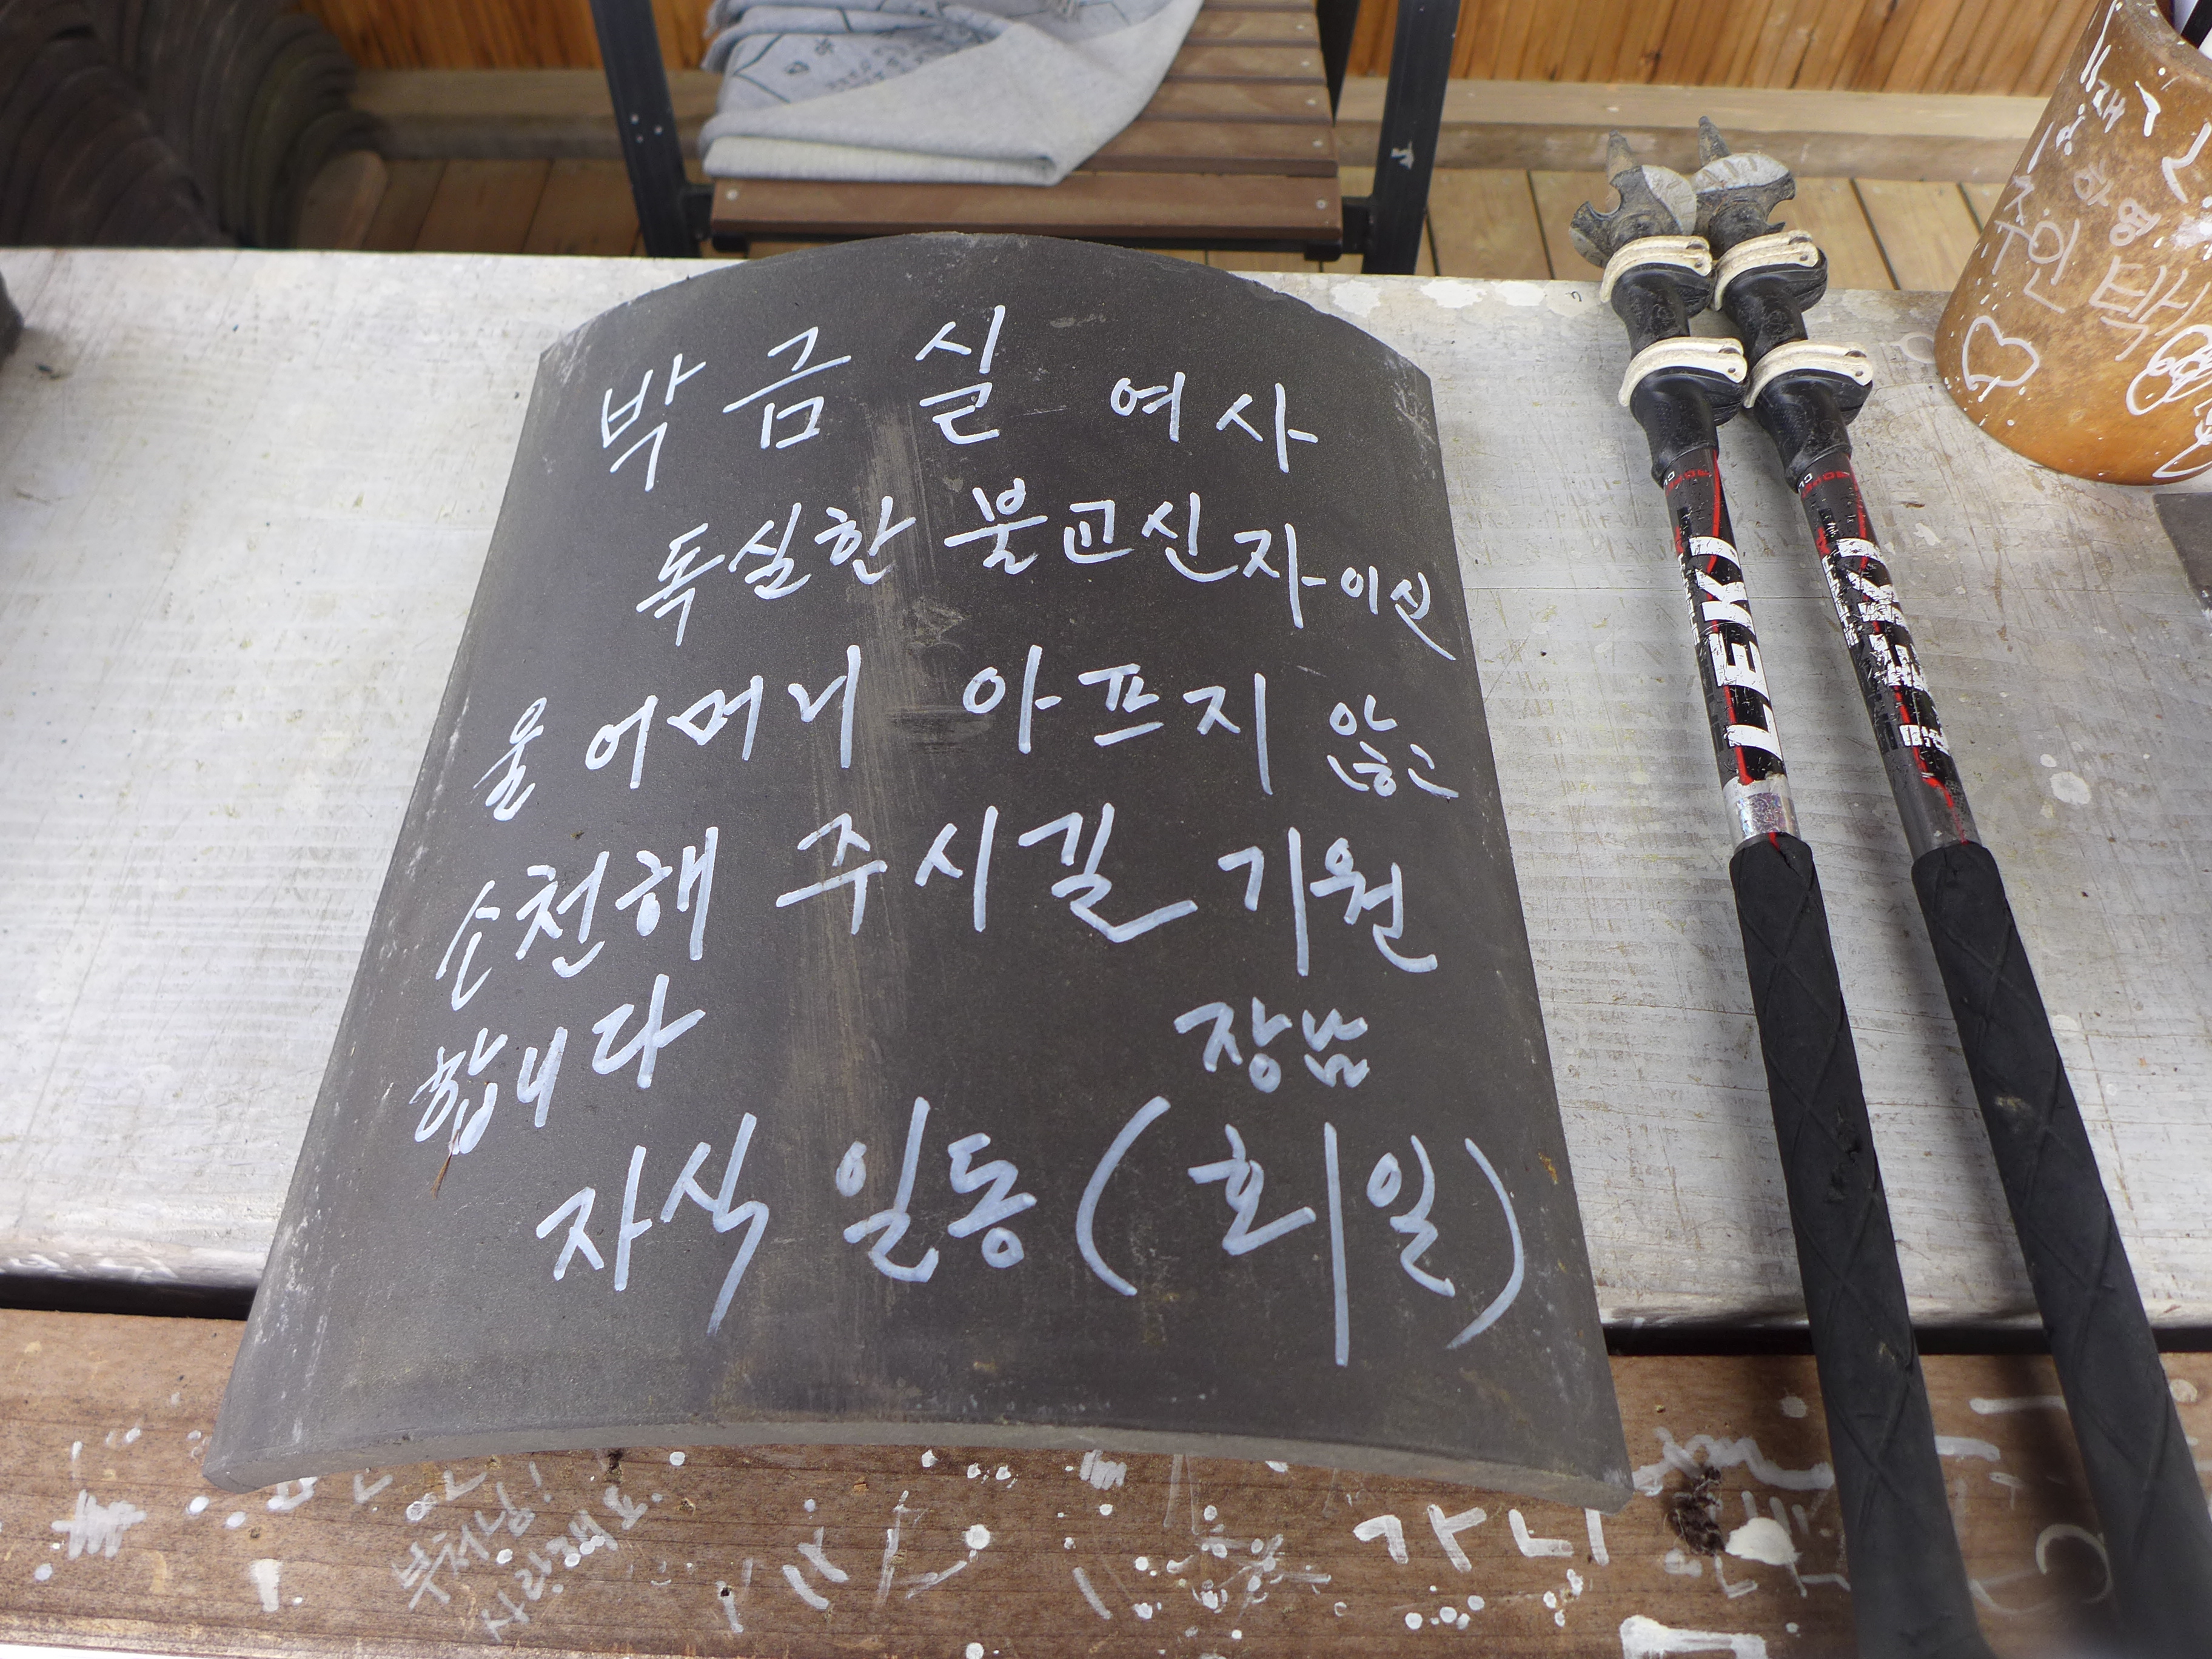 박금실 여사
독실한 불교신자이신
울 어머니 아프지 않고
소천해 주시길 기원
합니다
장남
자식 일동 (회일)
LEKI
LEKI
주인
부처님!
사랑해요.
가니